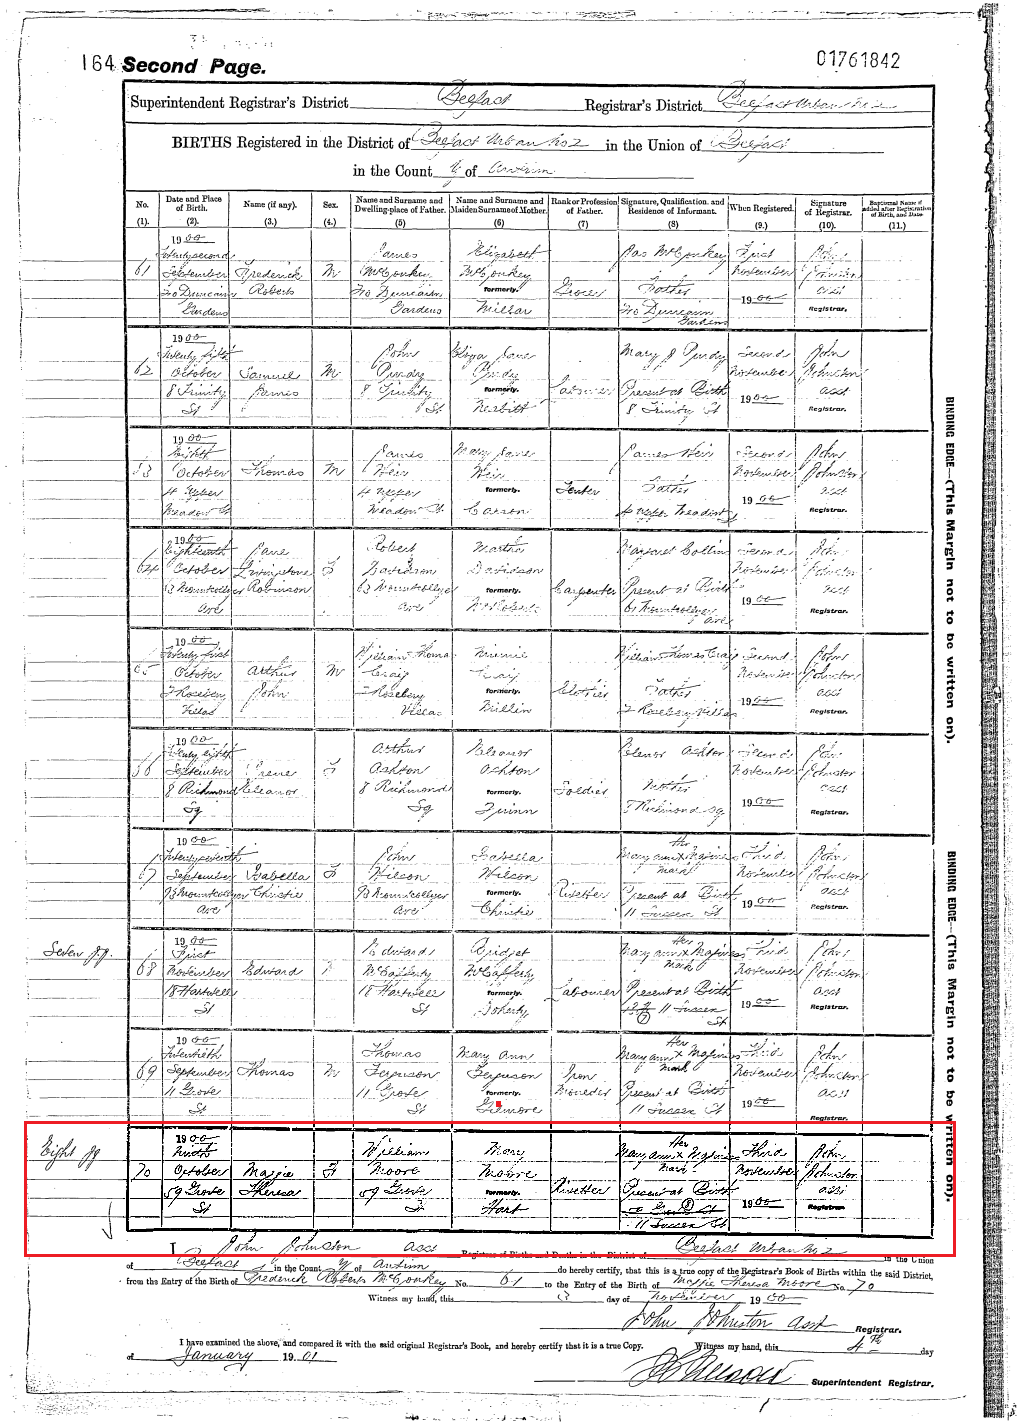 164 Second Page.
01761842
Superintendent Registrar's District Belfast Registrar's District Belfast Urban No 2
BIRTHS Registered in the District of Belfast Urban No 2 in the Union of Belfast
in the County of Antrim
No. (1). Date and Place of Birth. (2). Name (if any). (3.) Sex. (4.) Name and Surname and Dwelling-place of Father. (5) Name and Surname and Maiden Surname of Mother. (6) Rank or Profession of Father. (7) Signature, Qualification, and Residence of Informant. (8) When Registered. (9.) Signature of Registrar. (10.) Baptismal Name if added after Registration of Birth, and Date (11.)
1900
Twenty second James Elizabeth Jas McConkey First John
61 September Frederick M McConkey McConkey November Johnston
270 Duncairn Roberts 270 Duncairn formerly. Grocer Father 1900 asst
Gardens Gardens Millar 270 Duncairn Gardens Registrar.
1900
Twenty first John Eliza Jane Mary J Purdy Second John
62 October Samuel M Purdy Purdy November Johnston
8 Trinity James 8 Trinity formerly. Labourer Present at Birth 1900 asst
St St Nesbitt 8 Trinity St Registrar.
1900
Eighth James Mary Jane James Weir Second John
63 October Thomas M Weir Weir November Johnston
4 Upper 4 Upper formerly. Tenter Father 1900 asst
Meadow St Meadow St Carson 4 Upper Meadow St Registrar.
1900
Eighteenth Jane Robert Martha Margaret Collins Second John
64 October Livingstone F Davidson Davidson November Johnston
63 Mountcollyer Robinson 63 Mountcollyer formerly. Carpenter Present at Birth 1900 asst
Ave Ave McRoberts 61 Mountcollyer Ave Registrar.
1900
Twenty first William Thomas Minnie William Thomas Craig Second John
65 October Arthur M Craig Craig November Johnston
2 Rosebery John 2 Rosebery formerly. Clothier Father 1900 asst
Villas Villas Millin 2 Rosebery Villas Registrar.
1900
Twenty eighth Arthur Eleanor Elenor Ashton Second John
66 September Irene F Ashton Ashton November Johnston
8 Richmond Eleanor 8 Richmond formerly. Soldier Mother 1900 asst
Sq Sq Quinn 8 Richmond Sq Registrar.
1900
Twenty seventh John Isabella Mary Ann X Maginess Her mark Third John
67 September Isabella F Wilson Wilson November Johnston
93 Mountcollyer Christie 93 Mountcollyer formerly. Rivetter Present at Birth 1900 asst
Ave Ave Christie 11 Sussex St Registrar.
Seven JJ.
1900
First Edward Bridget Mary Ann X Maginess Her mark Third John
68 November Edward McCafferty McCafferty November Johnston
18 Hartwell 18 Hartwell formerly. Labourer Present at Birth 1900 asst
St St Doherty (7) 11 Sussex St Registrar.
1900
Twentieth Thomas Mary Ann Mary Ann X Maginess Her mark Third John
69 September Thomas M Ferguson Ferguson Iron November Johnston
11 Grove 11 Grove formerly. Moulder Present at Birth 1900 asst
St St Gilmore 11 Sussex St Registrar.
Eight JJ
1900
Ninth William Mary Mary Ann X Maginess Her mark Third John
70 October Maggie F Moore Moore November Johnston
59 Grove Theresa 59 Grove formerly. Rivetter Present at Birth 1900 asst
St St Hart (8) 11 Sussex St Registrar
I John Johnston Asst Registrar of Births and Deaths in the District of Belfast Urban No 2 in the Union
of Belfast in the County of Antrim do hereby certify, that this is a true copy of the Registrar's Book of Births within the said District,
from the Entry of the Birth of Frederick Roberts McConkey No. 61 to the Entry of the Birth of Maggie Theresa Moore No. 70
Witness my hand, this 3 day of November 1900
John Johnston Asst Registrar.
I have examined the above, and compared it with the said original Registrar's Book, and hereby certify that it is a true Copy. Witness my hand, this 4th day
of January 1901
Superintendent Registrar.
BINDING EDGE—(This Margin not to be written on).
BINDING EDGE—(This Margin not to be written on).